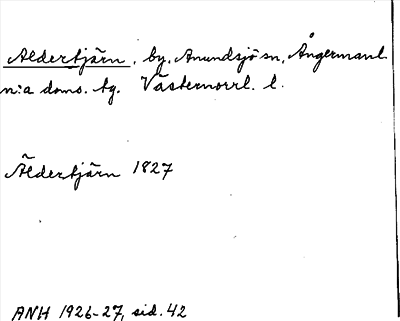 Aldertjärn, by, Anundsjö sn, Ångermanl.
n:a doms. tg. Västernorrl. l.
Äldertjärn 1827
ANH 1926-27, sid. 42